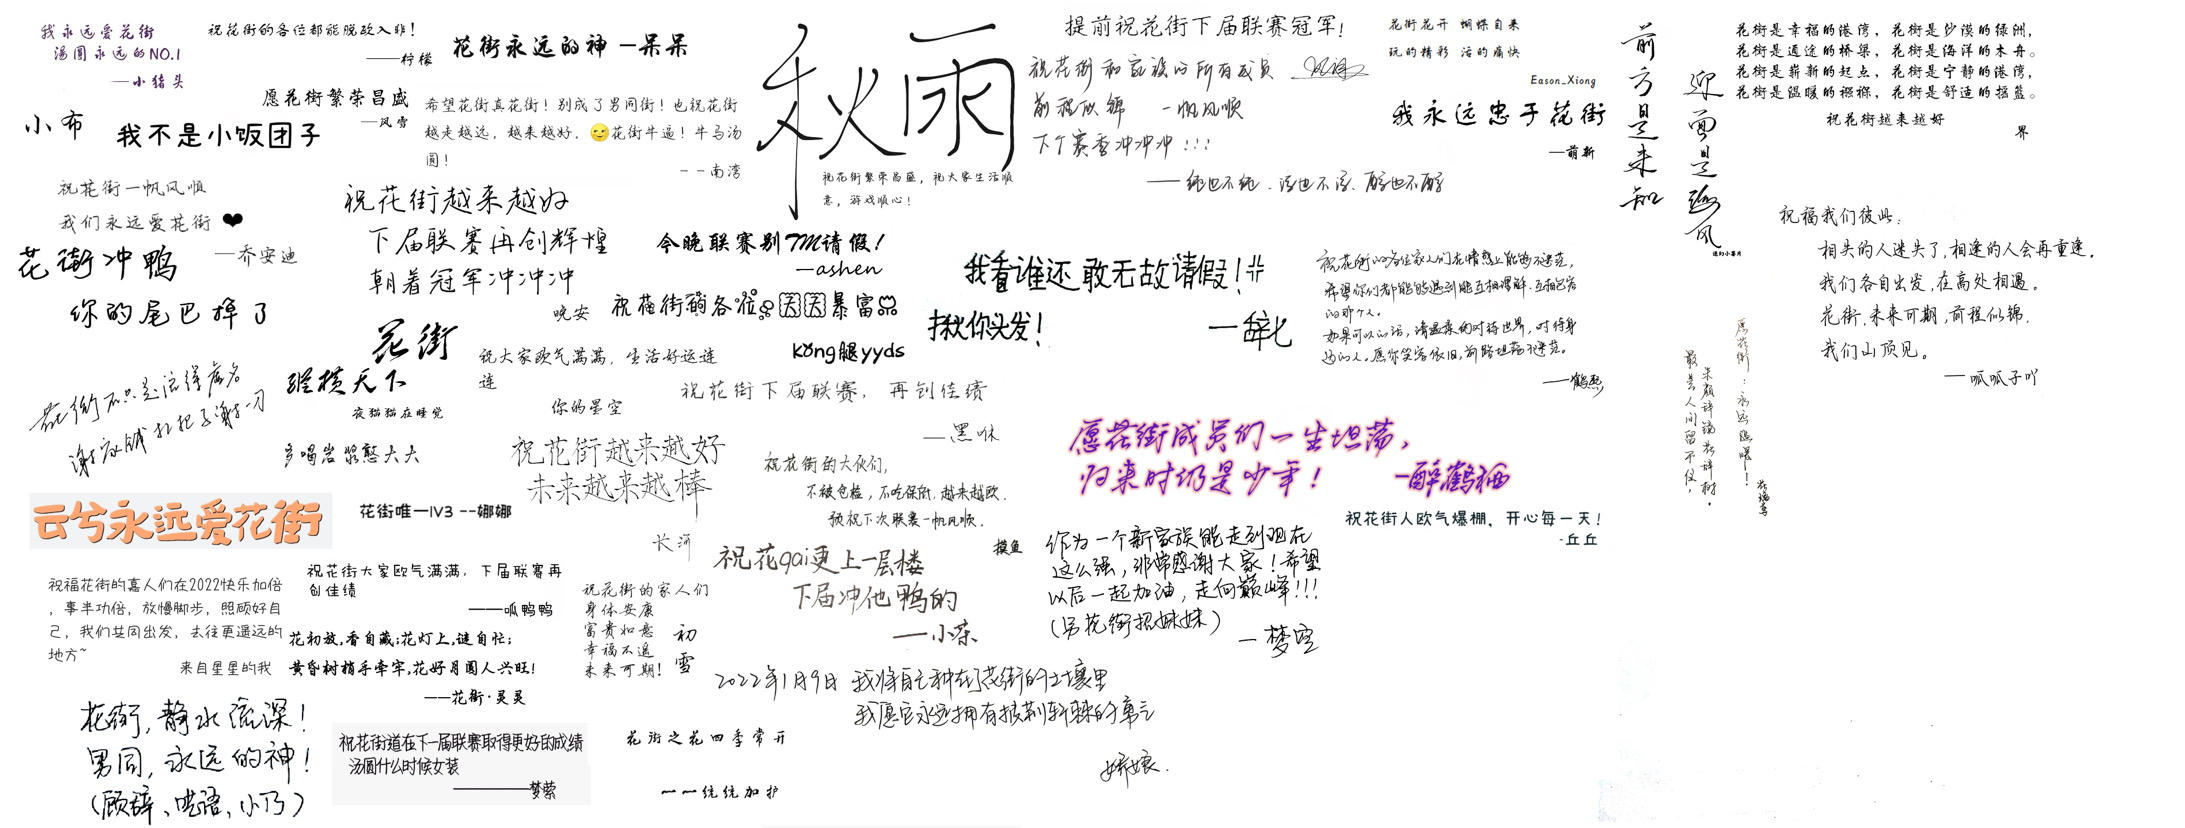 我永远爱花街
汤圆永远的NO.1
——小猪头
祝花街的各位都能脱欧入非！
——柠檬
花街永远的神 —呆呆
小布
我不是小饭团子
愿花街繁荣昌盛
—风雪
希望花街真花街！别成了男同街！也祝花街
越走越远，越来越好，😉花街牛逼！牛马汤
圆！
--南湾
秋雨
祝花街繁荣昌盛，祝大家生活顺
意，游戏顺心！
提前祝花街下届联赛冠军！
祝花街和家族的所有成员
前程似锦 一帆风顺
下个赛季冲冲冲！！！
花街花开 蝴蝶自来
玩的精彩 活的痛快
Eason_Xiong
我永远忠于花街
—萌新
前方是未知
迎面是逆风
花街是幸福的港湾，花街是沙漠的绿洲，
花街是通途的桥梁，花街是海洋的木舟。
花街是崭新的起点，花街是宁静的港湾，
花街是温暖的襁褓，花街是舒适的摇篮。
祝花街越来越好
界
祝花街一帆风顺
我们永远爱花街 ❤
—乔安迪
花街冲鸭
你的尾巴掉了
祝花街越来越好
下届联赛再创辉煌
朝着冠军冲冲冲
晚安
今晚联赛别TM请假！
—ashen
祝花街的各位天天暴富
kong腿yyds
我看谁还敢无故请假！#
揪你头发！
—辞七
祝花街的各位家人们在情感上能够不迷茫，
希望你们都能能够遇到能互相理解、互相包容
的那个人。
如果可以的话，请温柔的对待世界，对待身
边的人。愿你笑容依旧，前路坦荡不迷茫。
——鹤熙
祝福我们彼此：
相失的人迷失了，相逢的人会再重逢。
我们各自出发，在高处相遇。
花街，未来可期，前程似锦，
我们山顶见。
—呱呱子吖
花街
纵横天下
夜猫猫在睡觉
祝大家欧气满满，生活好运连
连
你的星空
祝花街下届联赛，再创佳绩
—黑咻
多喝岩浆憨大大
祝花街越来越好
未来越来越棒
长河
祝花街的大伙们，
不被仓检，不吃保底，越来越欧，
预祝下次联赛一帆风顺。
摸鱼
愿花街成员们一生坦荡，
归来时仍是少年！
—醉鹤栖
愿花街：永远温暖！
朱颜辞镜花辞树。
最是人间留不住，
云兮永远爱花街
花街唯一IV3 --娜娜
祝花街人欧气爆棚，开心每一天！
-丘丘
祝福花街的嘉人们在2022快乐加倍
，事半功倍，放慢脚步，照顾好自
己，我们共同出发，去往更遥远的
地方~
来自星星的我
祝花街大家欧气满满，下届联赛再
创佳绩
——呱鸭鸭
花初放，香自藏；花灯上，谜自忙；
黄昏树梢手牵牢，花好月圆人兴旺！
——花街·灵灵
祝花街的家人们
身体安康
富贵如意
幸福不遥
未来可期！
初雪
祝花gai更上一层楼
下届冲他鸭的
——小茶
作为一个新家族能走到现在
这么强，非常感谢大家！希望
以后一起加油，走向巅峰！！！
（另花街招妹妹）
—梦空
2022年1月9日 我将自己种在了花街的土壤里
我愿它永远拥有披荆斩棘的勇气
娇娘.
花街，静水流深！
男同，永远的神！
祝花街道在下一届联赛取得更好的成绩
汤圆什么时候女装
————梦萦
花街之花四季常开
一一统统加护